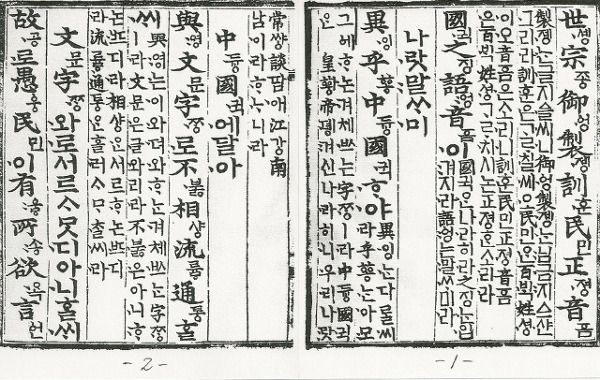 世솅宗종御엉製졩訓훈民민正졍音흠
製졩는글지ᅀᅳᆯ씨니御엉製졩는님금지ᅀᅳ샨
그리라訓훈은ᄀᆞᄅᆞ칠씨오民민은百ᄇᆡᆨ姓셩
이오音흠은소리니訓훈民민正졍音흠
은百ᄇᆡᆨ姓셩ᄀᆞᄅᆞ치시논正졍ᄒᆞᆫ소리라
國귁之징語엉音흠이
國귁은나라히라之징는입
겨지라語엉는말ᄊᆞ미라
나랏말ᄊᆞ미
異잉乎ᅘᅩᆼ中듕國귁ᄒᆞ야
異잉는다ᄅᆞᆯ씨
라乎ᅘᅩᆼ는아모
그ᅌᅦᄒᆞ논겨체ᄡᅳ는字ᄍᆞᆼㅣ라中듕國귁
은皇ᅘᅪᆼ帝뎽겨신나라히니우리나랏
-1-
常쌍談땀애江강南
남이라ᄒᆞᄂᆞ니라
中듕國귁에달아
與영文문字ᄍᆞᆼ로不붏相샹流륭通통ᄒᆞᆯ
ᄊᆡ與영는이와뎌와ᄒᆞ는겨체ᄡᅳ는字ᄍᆞᆼ
ㅣ라文문은글와리라不붏은아니ᄒᆞ
논ᄠᅳ디라相샹ᄋᆞᆫ서르ᄒᆞ논ᄠᅳ디
라流륭通통ᄋᆞᆫ흘러ᄉᆞᄆᆞᄎᆞᆯ씨라
文문字ᄍᆞᆼ와로서르ᄉᆞᄆᆞᆺ디아니ᄒᆞᆯᄊᆡ
故공로愚웅民민이有ᅌᅮᇢ所송欲욕言언
-2-